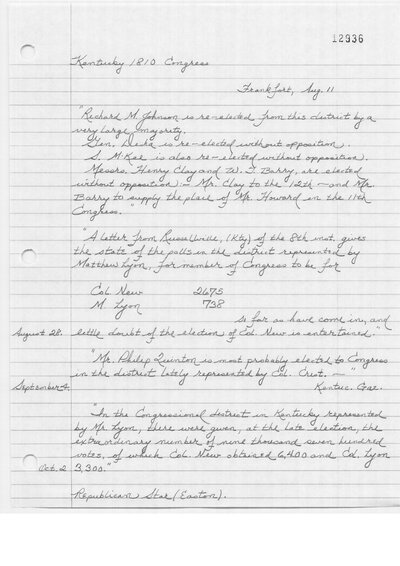 12936
Kentucky 1810 Congress
Frankfort, Aug. 11
"Richard M. Johnson is re-elected from this district by a
very large majority.
Gen. Desha is re-elected without opposition.
S. McKee is also re-elected without opposition.
Messrs. Henry Clay and W. T. Barry, are elected
without opposition - Mr. Clay to the 12th - and Mr.
Barry to supply the place of Mr. Howard in the 11th
Congress."
"A letter from Russellville, (Kty) of the 8th inst. gives
the state of the polls in the district represented by
Matthew Lyon, for member of Congress to be for
Col. New 2675
M. Lyon 738
is far as have come in, and
August 28. little doubt of the election of Col. New is entertained."
"Mr. Philip Quinton is most probably elected to Congress
in the district lately represented by Col. Crist. - "
September 4. Kentuc. Gaz.
"In the Congressional district in Kentucky represented
by Mr. Lyon, there were given, at the late election, the
extraordinary number of nine thousand seven hundred
votes, of which Col. New obtained 6,400 and Col. Lyon
Oct. 2 3,300."
Republican Star (Easton).